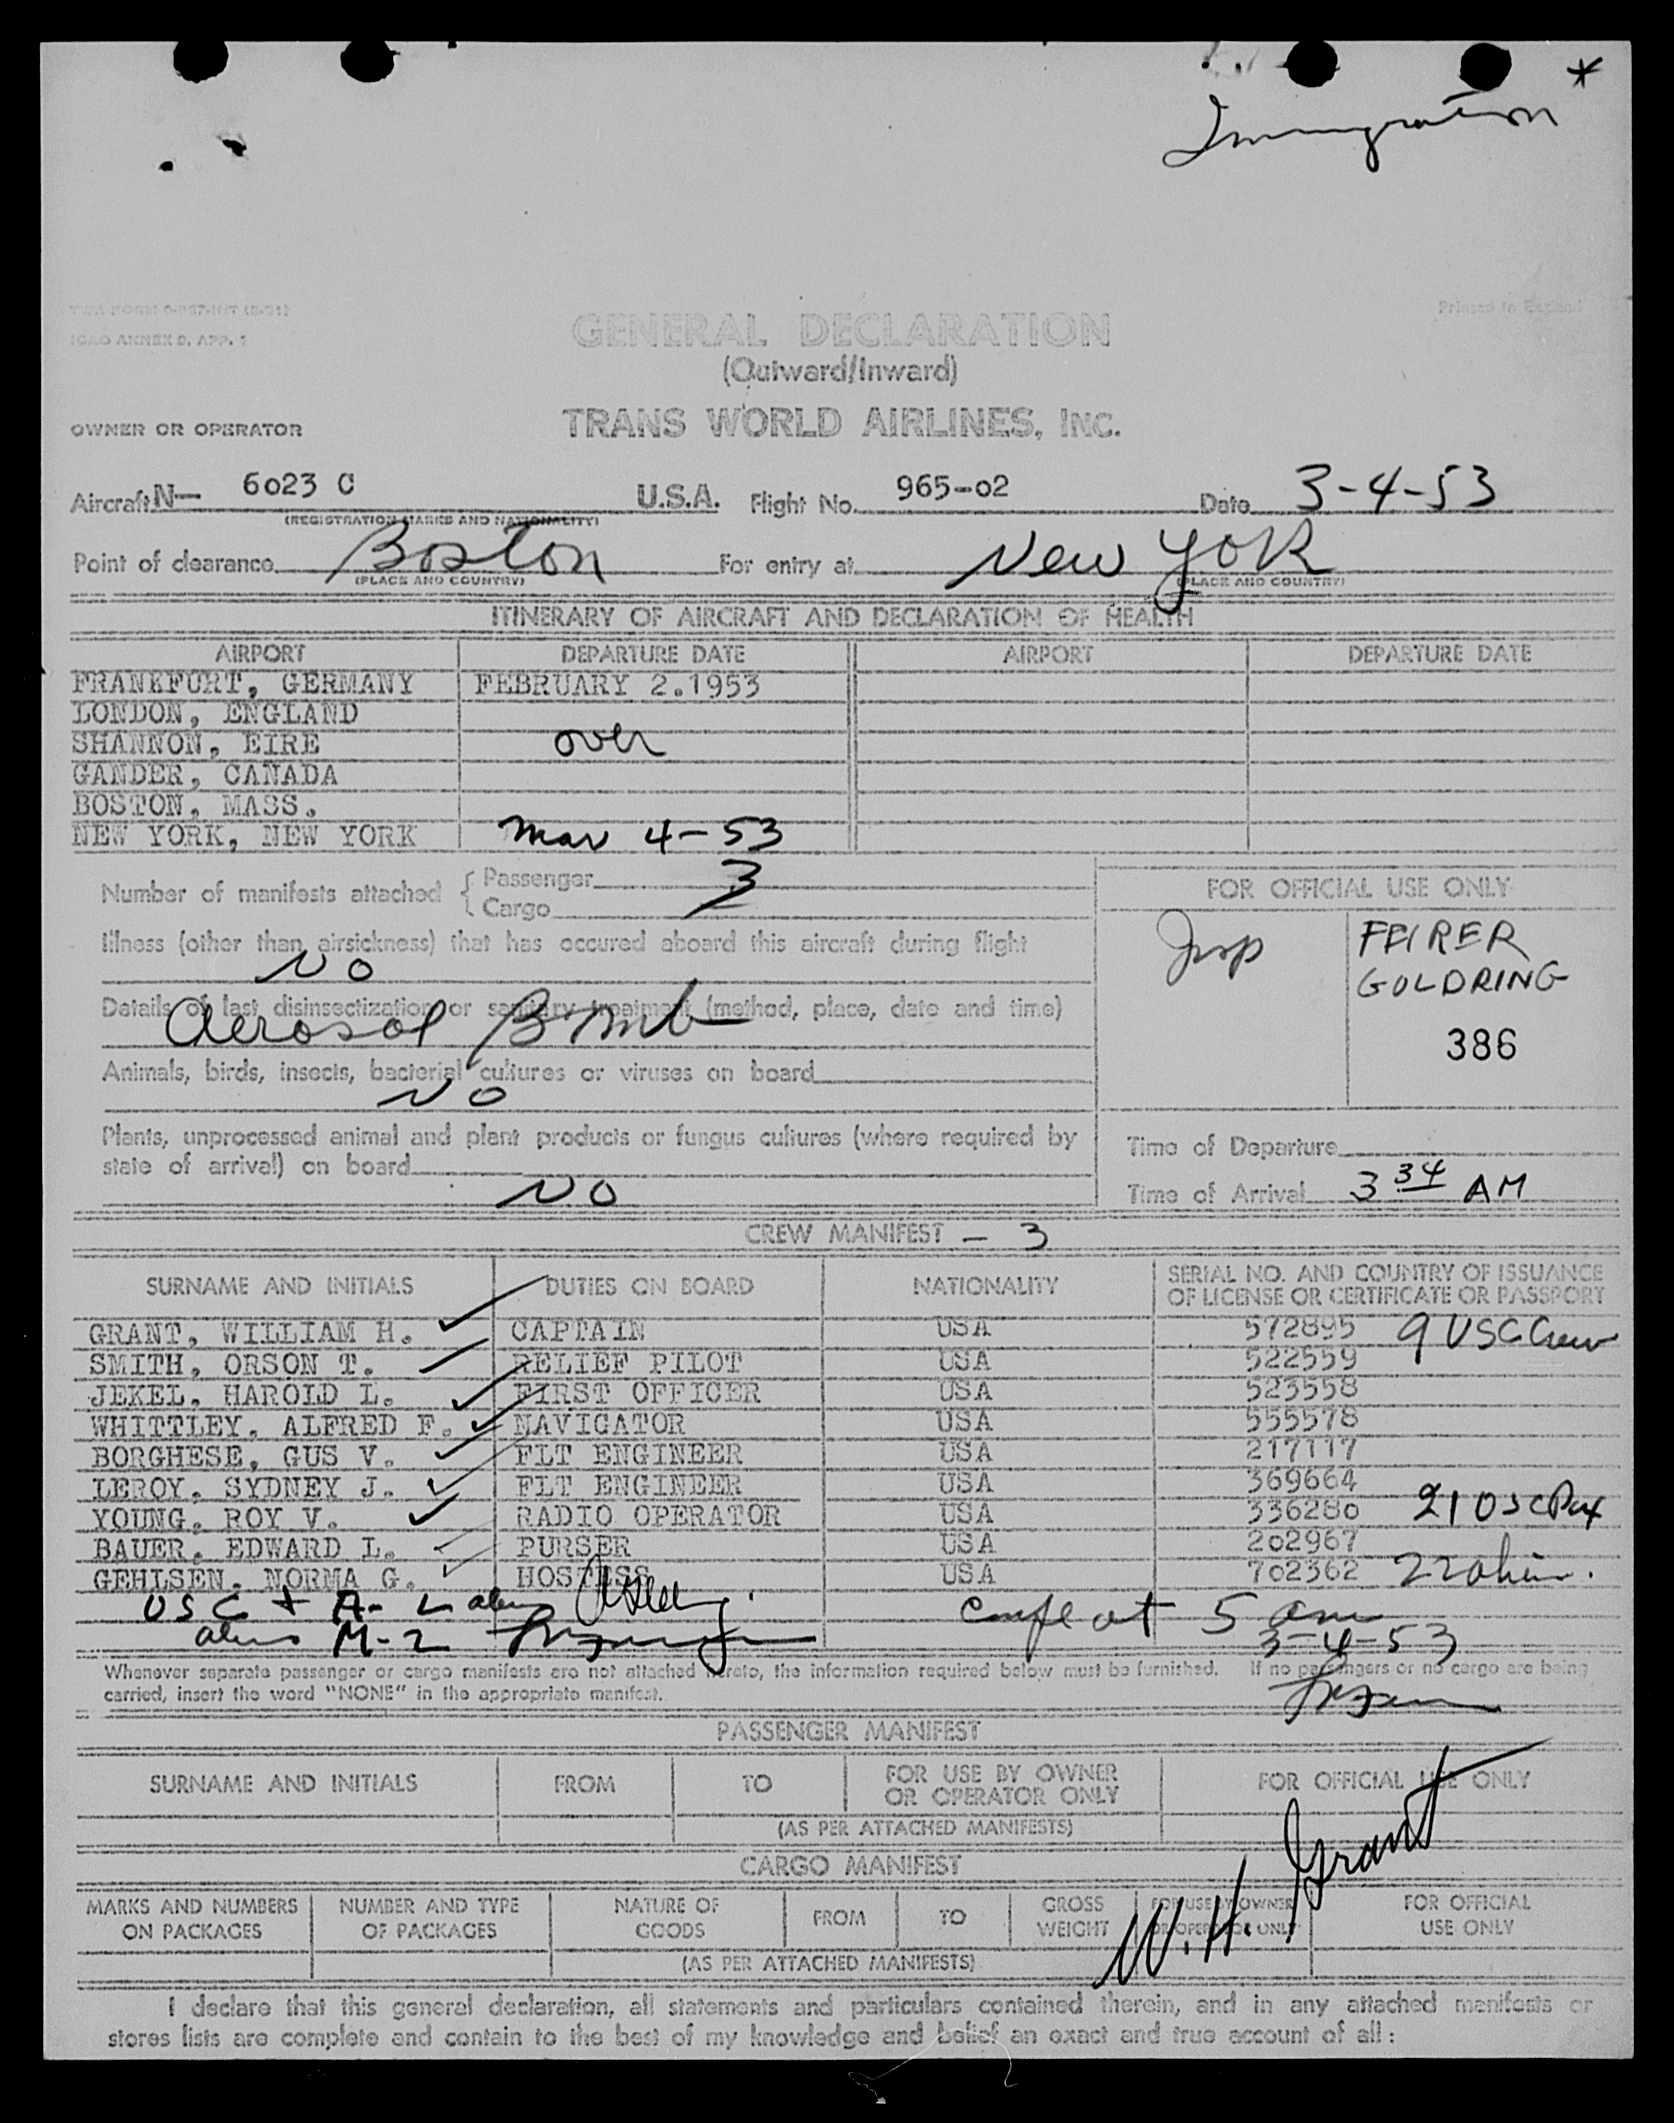 *
Immigration
TWA FORM
ICAO ANNEX 9, APP. 1
Printed in England
GENERAL DECLARATION
(Outward/Inward)
OWNER OR OPERATOR TRANS WORLD AIRLINES, INC.
Aircraft N— 6023 C U.S.A. Flight No. 965-02 Date 3-4-53
(REGISTRATION MARKS AND NATIONALITY)
Point of clearance Boston For entry at New York
(PLACE AND COUNTRY) (PLACE AND COUNTRY)
ITINERARY OF AIRCRAFT AND DECLARATION OF HEALTH
AIRPORT DEPARTURE DATE AIRPORT DEPARTURE DATE
FRANKFURT, GERMANY FEBRUARY 2.1953
LONDON, ENGLAND
SHANNON, EIRE over
GANDER, CANADA
BOSTON, MASS.
NEW YORK, NEW YORK Mar 4-53
Number of manifests attached { Passenger 3
Cargo
FOR OFFICIAL USE ONLY
Illness (other than airsickness) that has occured aboard this aircraft during flight
NO
Insp FEIRER
GOLDRING
386
Details of last disinsectization or sanitary treatment (method, place, date and time)
Aerosol Bomb
Animals, birds, insects, bacterial cultures or viruses on board
NO
Plants, unprocessed animal and plant products or fungus cultures (where required by
state of arrival) on board
NO
Time of Departure
Time of Arrival 3 34 AM
CREW MANIFEST - 3
SURNAME AND INITIALS DUTIES ON BOARD NATIONALITY SERIAL NO. AND COUNTRY OF ISSUANCE
OF LICENSE OR CERTIFICATE OR PASSPORT
GRANT, WILLIAM H. CAPTAIN USA 572895 9 USC Crew
SMITH, ORSON T. RELIEF PILOT USA 522559
JEKEL, HAROLD L. FIRST OFFICER USA 523558
WHITTLEY, ALFRED F. NAVIGATOR USA 555578
BORGHESE, GUS V. FLT ENGINEER USA 217117
LEROY, SYDNEY J. FLT ENGINEER USA 369664
YOUNG, ROY V. RADIO OPERATOR USA 336280 21 USC Pax
BAUER, EDWARD L. PURSER USA 202967
GEHLSEN, NORMA G. HOSTESS USA 702362 22 alien.
USC + A-L alien
alien M-2
Compl at 5 am
3-4-53
Whenever separate passenger or cargo manifests are not attached hereto, the information required below must be furnished. If no passengers or no cargo are being
carried, insert the word "NONE" in the appropriate manifest.
PASSENGER MANIFEST
SURNAME AND INITIALS FROM TO FOR USE BY OWNER
OR OPERATOR ONLY FOR OFFICIAL USE ONLY
(AS PER ATTACHED MANIFESTS)
CARGO MANIFEST
MARKS AND NUMBERS
ON PACKAGES NUMBER AND TYPE
OF PACKAGES NATURE OF
GOODS FROM TO GROSS
WEIGHT FOR USE BY OWNER
OR OPERATOR ONLY FOR OFFICIAL
USE ONLY
(AS PER ATTACHED MANIFESTS)
W. H. Grant
I declare that this general declaration, all statements and particulars contained therein, and in any attached manifests or
stores lists are complete and contain to the best of my knowledge and belief an exact and true account of all :